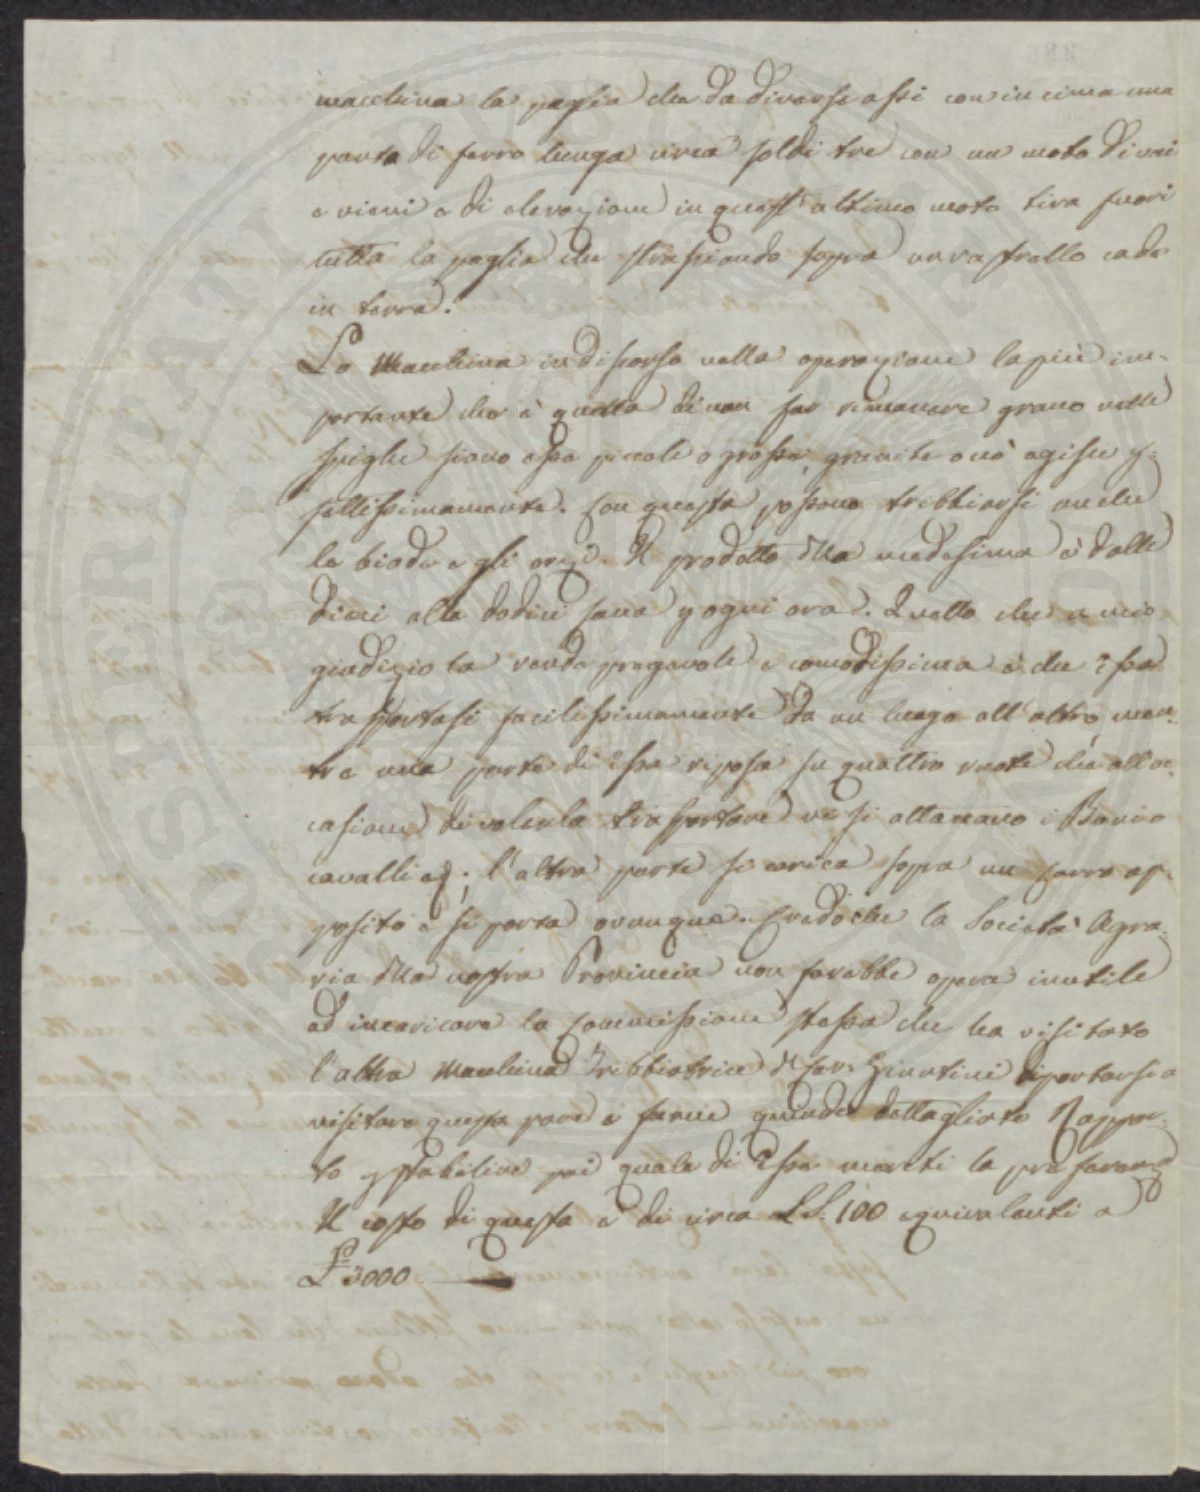 macchina la paglia che da diverse assi con in cima una
punta di ferro lunga circa soldi tre con un moto di vai
e vieni e di elevazione in quest'ultimo moto tira fuori
tutta la paglia che strasciando sopra un rastrello cade
in terra.
La Macchina in discorso nella operazione la più im-
portante che è quella di non far rimanere grano nelle
spighe siano esse piccole o grosse, gremite o nò agisce p-
fettissimamente. Con questa possono tribbiarsi anche
le biade e gli orzi. Il prodotto della medesima è dalle
dieci alle dodici sacca p ogni ora. Quello che a mio
giudizio la rende pregevole e comodissima è che Essa
trasportasi facilissimamente da un luogo all'altro men-
tre una parte di Essa riposa su quattro ruote che all'oc-
casione di volerla trasportare vi si attaccano i Bovi o
cavalli; l'altra parte si carica sopra un Carro ap-
posito e si porta ovunque. Credo che la Società Agra-
ria della nostra Provincia non farebbe opera inutile
ad incaricare la Commissione stessa che ha visitato
l'altra Macchina Tribbiatrice del Giustini di portarsi a
visitare questa pure e farne quindi dettagliato Rappor-
to p stabilire poi quale di Esse meriti la preferenza
Il costo di questa è di circa LS. 100 equivalenti a
£ 3000